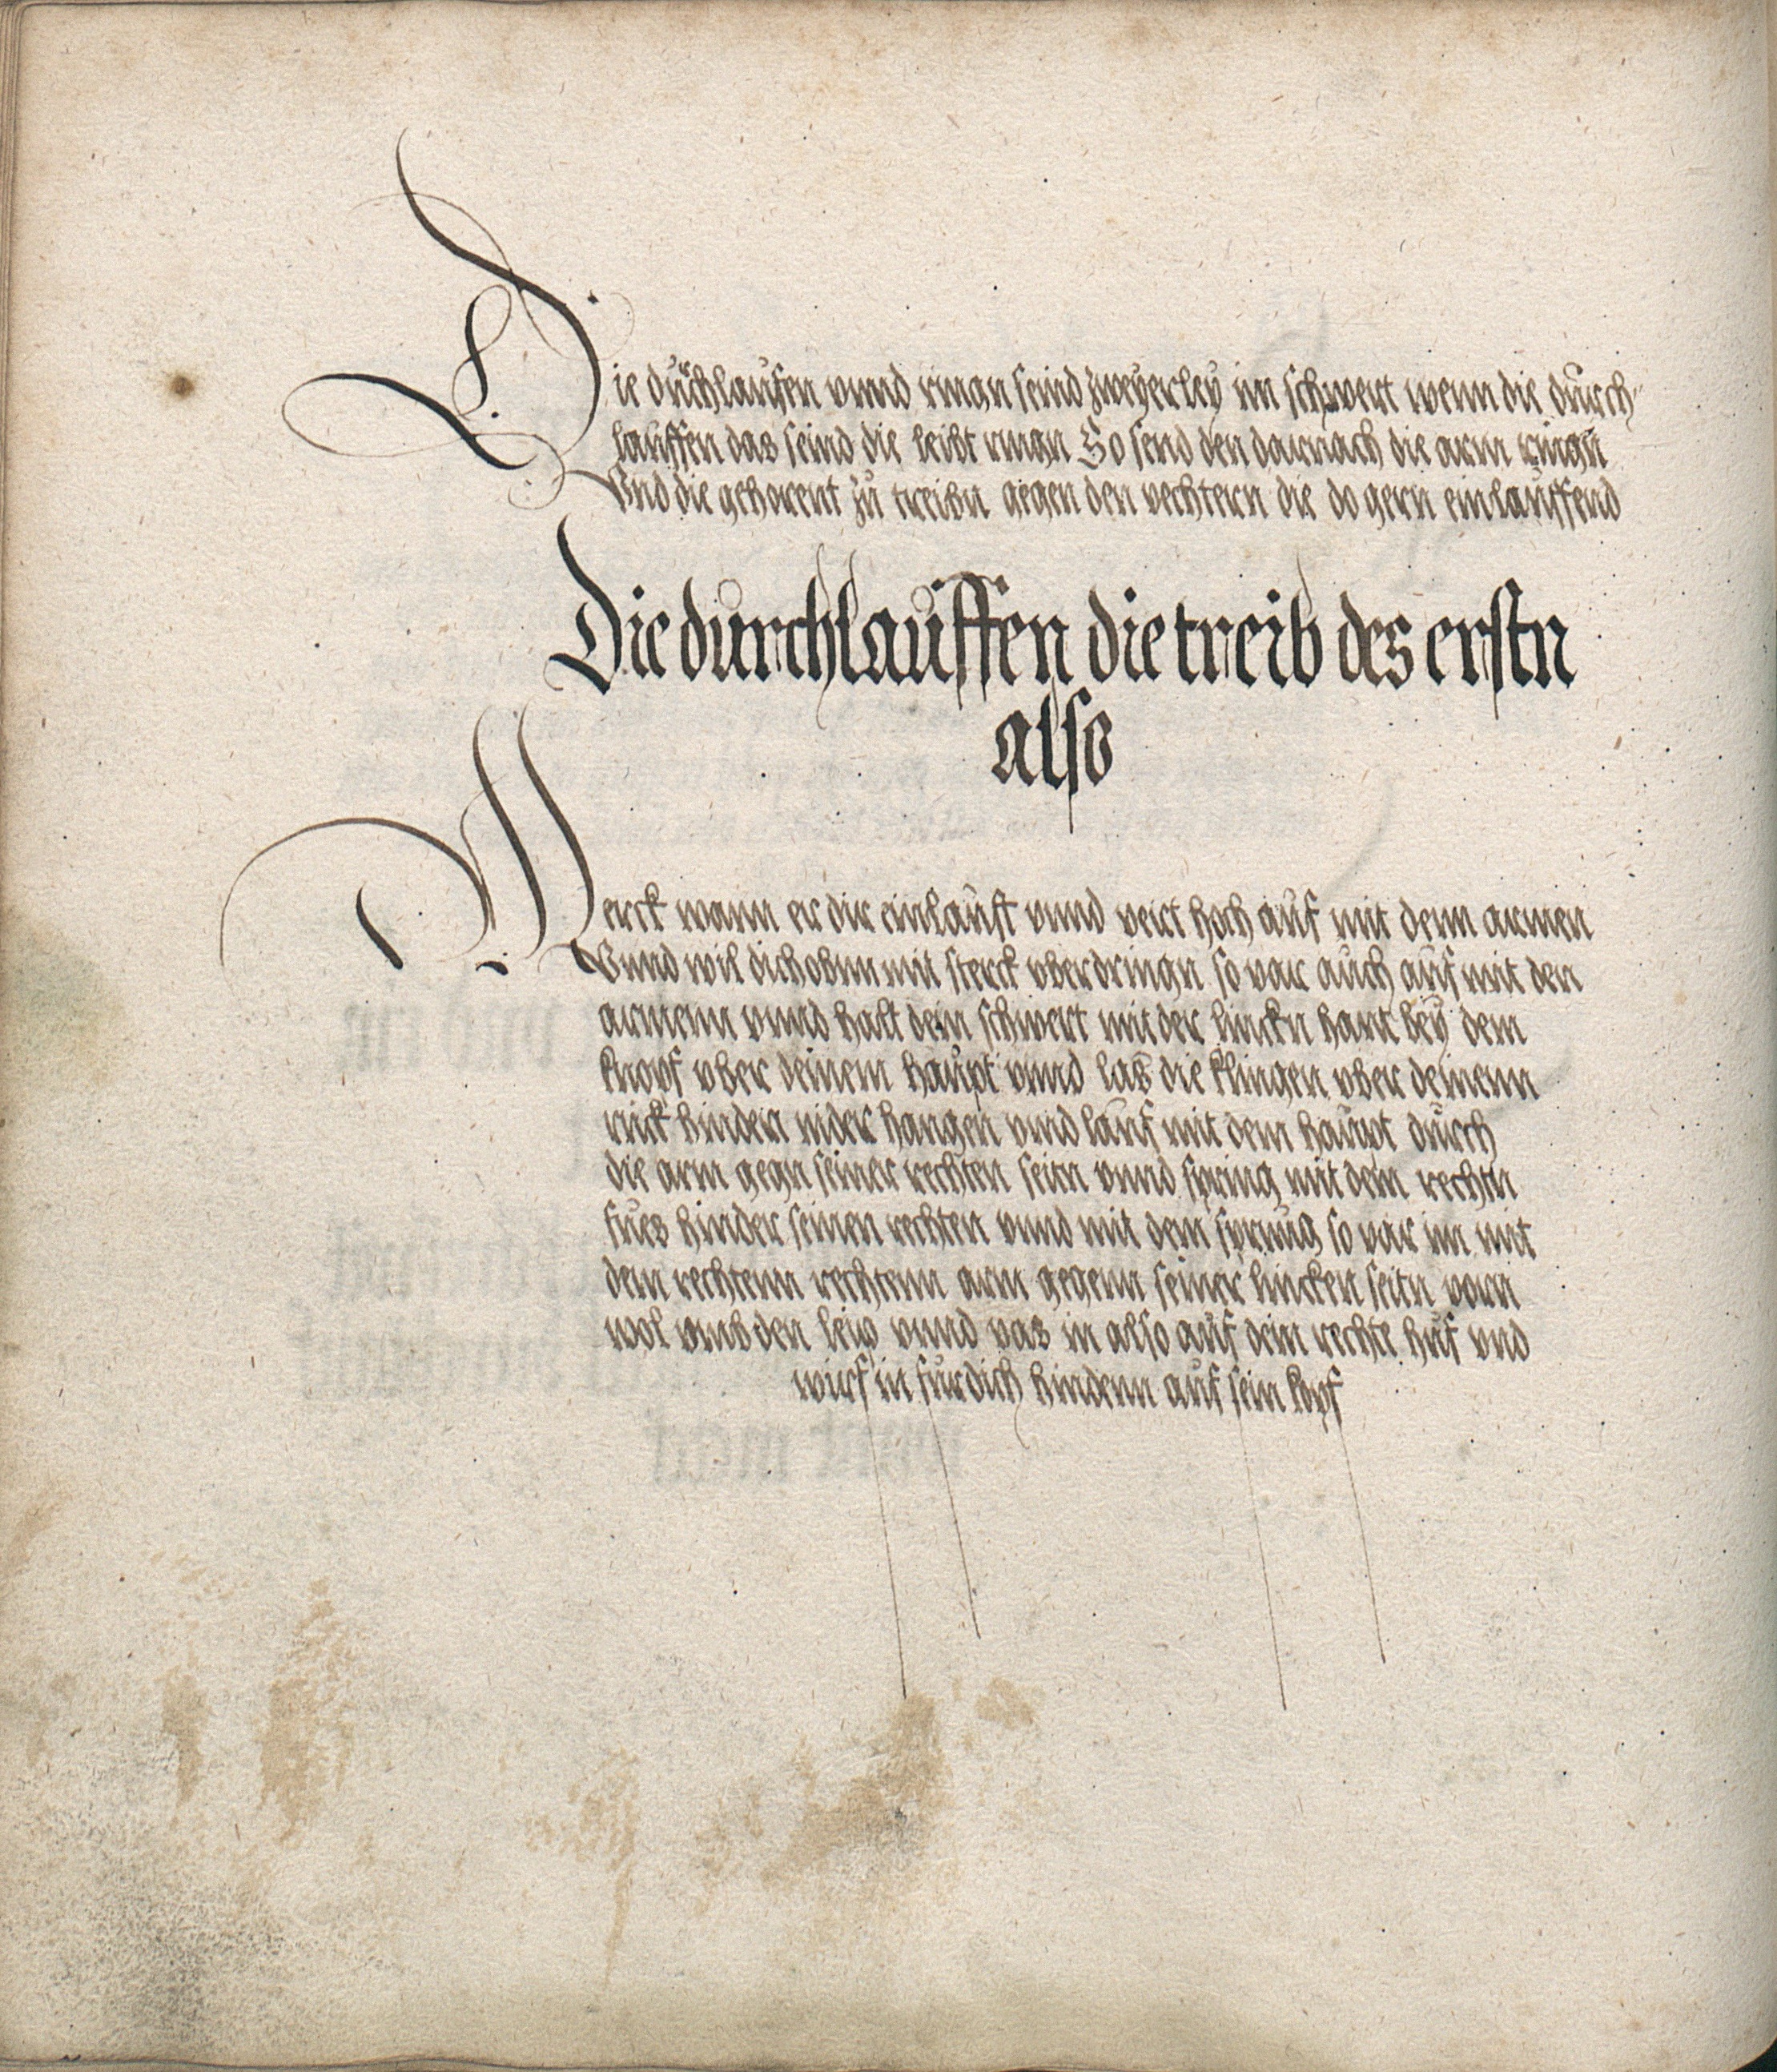 Die dürchlaufen vnnd ringn seind zweyerley im schwert wenn die dürch-
lauffen das seind die leibt ringn So send den darnach die arm ringn
Vnd die gehorent zü treibn gegen den vechtern die do gern einlauffend
Die durchlauffen die treib des erstn
also
Merck wann er dir einlaüft vnnd vert hoch auf mit denn armen
Vnnd wil dich obnn mit sterck vberdringn so var auch auf mit den
armenn vnnd halt dein schwert mit der linckn hant bey dem
knopf vber deinem haüpt vnnd las die klingen vber deinenn
rück hinden nider hangen vnd lauf mit dem haüpt dürch
die arm gegn seiner rechten seitn vnnd spring mit dem rechtn
fues hinder seinen rechten vnnd mit dem sprüng so var im mit
dem rechtenn rechtenn arm gegenn seiner lincken seitn vorn
wol vmb den leip vnnd vas in also auf dein rechte hüf vnd
wirf in für dich hindenn auf sein kopf